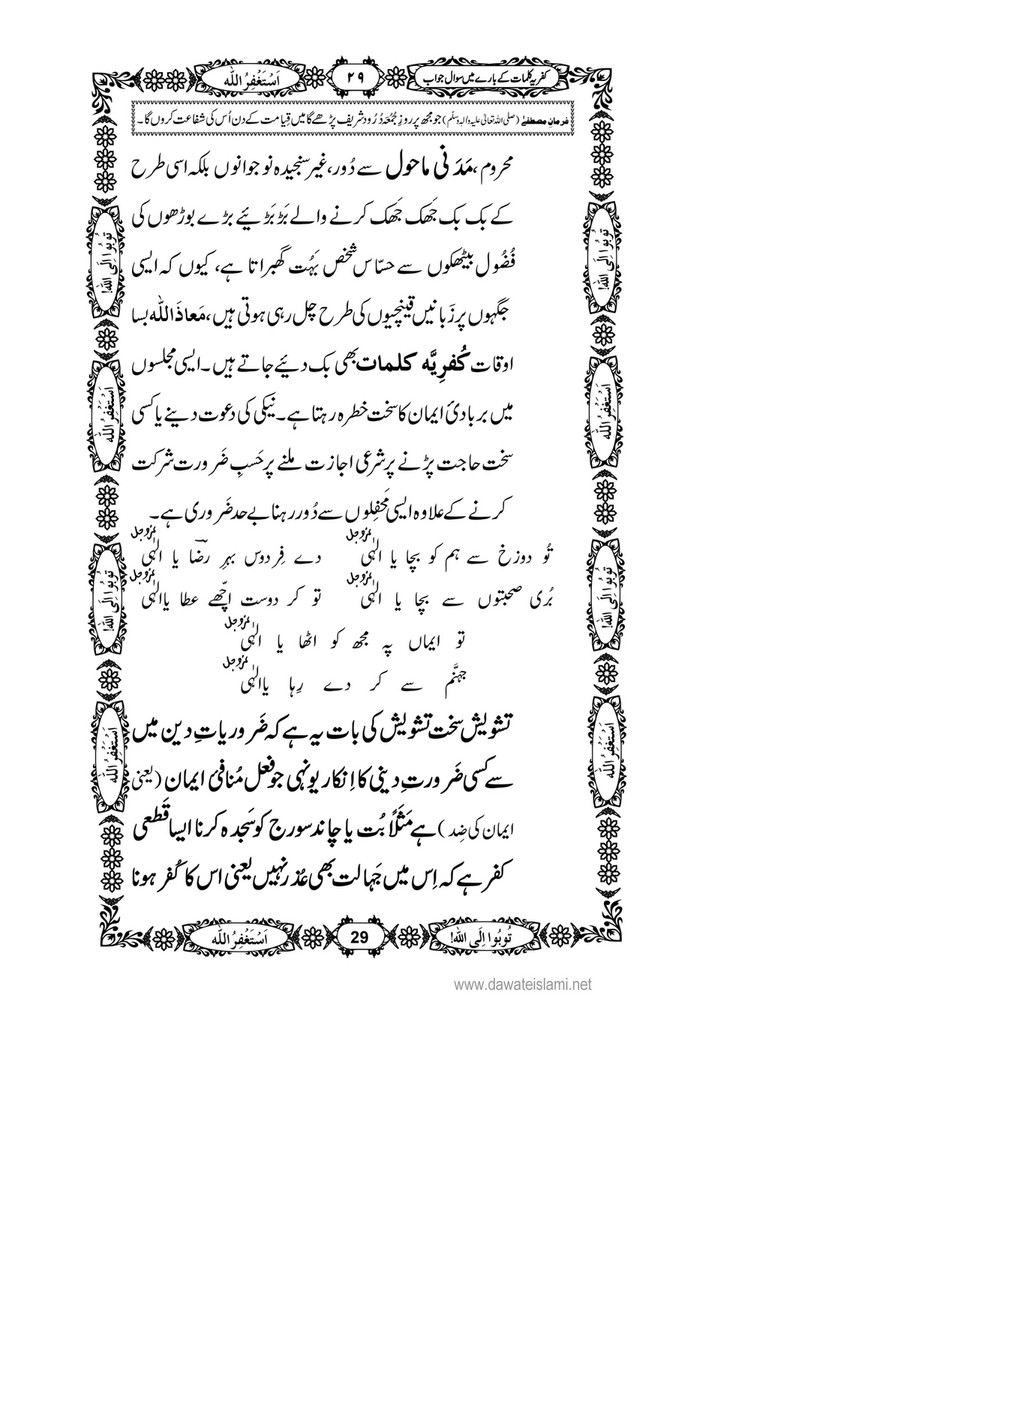 کفریہ کلمات کے بارے میں سوال جواب
۲۹
اَسْتَغْفِرُ اللّٰه
فرمانِ مصطفٰے (صلی اللہ تعالیٰ علیہ والہٖ وسلّم) جو مجھ پر روزِ جُمُعہ دُرُود شریف پڑھے گا میں قِیامت کے دن اُس کی شفاعت کروں گا۔
محروم، مَدَنی ماحول سے دُور، غیر سنجیدہ نوجوانوں بلکہ اسی طرح
کے بک بک جَھک جَھک کرنے والے بَڑبَڑیئے بڑے بوڑھوں کی
فُضُول بیٹھکوں سے حسّاس شخص بَہُت گھبراتا ہے، کیوں کہ ایسی
جگہوں پر زَبانیں قینچیوں کی طرح چل رہی ہوتی ہیں، مَعاذَاللّٰه بسا
اوقات کُفرِیَّہ کلمات بھی بک دیئے جاتے ہیں۔ ایسی مجلسوں
میں بربادیٔ ایمان کا سخت خطرہ رہتا ہے۔ نیکی کی دعوت دینے یا کسی
سخت حاجت پڑنے پر شرعی اجازت ملنے پر حَسبِ ضَرورت شرکت
کرنے کے علاوہ ایسی مَحفِلوں سے دُور رہنا بے حد ضَروری ہے۔
تُو دوزخ سے ہم کو بچا یا الٰہی عزوجل دے فِردوس بہرِ رضؔا یا الٰہی عزوجل
بُری صحبتوں سے بچا یا الٰہی عزوجل تو کر دوست اچّھے عطا یاالٰہی عزوجل
تو ایماں پہ مجھ کو اٹھا یا الٰہی عزوجل
جہنَّم سے کر دے رِہا یاالٰہی عزوجل
تشویش سخت تشویش کی بات یہ ہے کہ ضَروریاتِ دین میں
سے کسی ضَرورتِ دینی کا اِنکار یونہی جو فعل مُنافیٔ ایمان (یعنی
ایمان کی ضِد) ہے مَثَلًا بُت یا چاند سورج کو سَجدہ کرنا ایسا قَطعی
کفر ہے کہ اِس میں جَہالت بھی عُذر نہیں یعنی اس کا کُفر ہونا
تُوبُوا اِلَی اللّٰه!
اَسْتَغْفِرُ اللّٰه
تُوبُوا اِلَی اللّٰه!
اَسْتَغْفِرُ اللّٰه
تُوبُوا اِلَی اللّٰه!
اَسْتَغْفِرُ اللّٰه
تُوبُوا اِلَی اللّٰه!
اَسْتَغْفِرُ اللّٰه
تُوبُوا اِلَی اللّٰه!
29
اَسْتَغْفِرُ اللّٰه
www.dawateislami.net